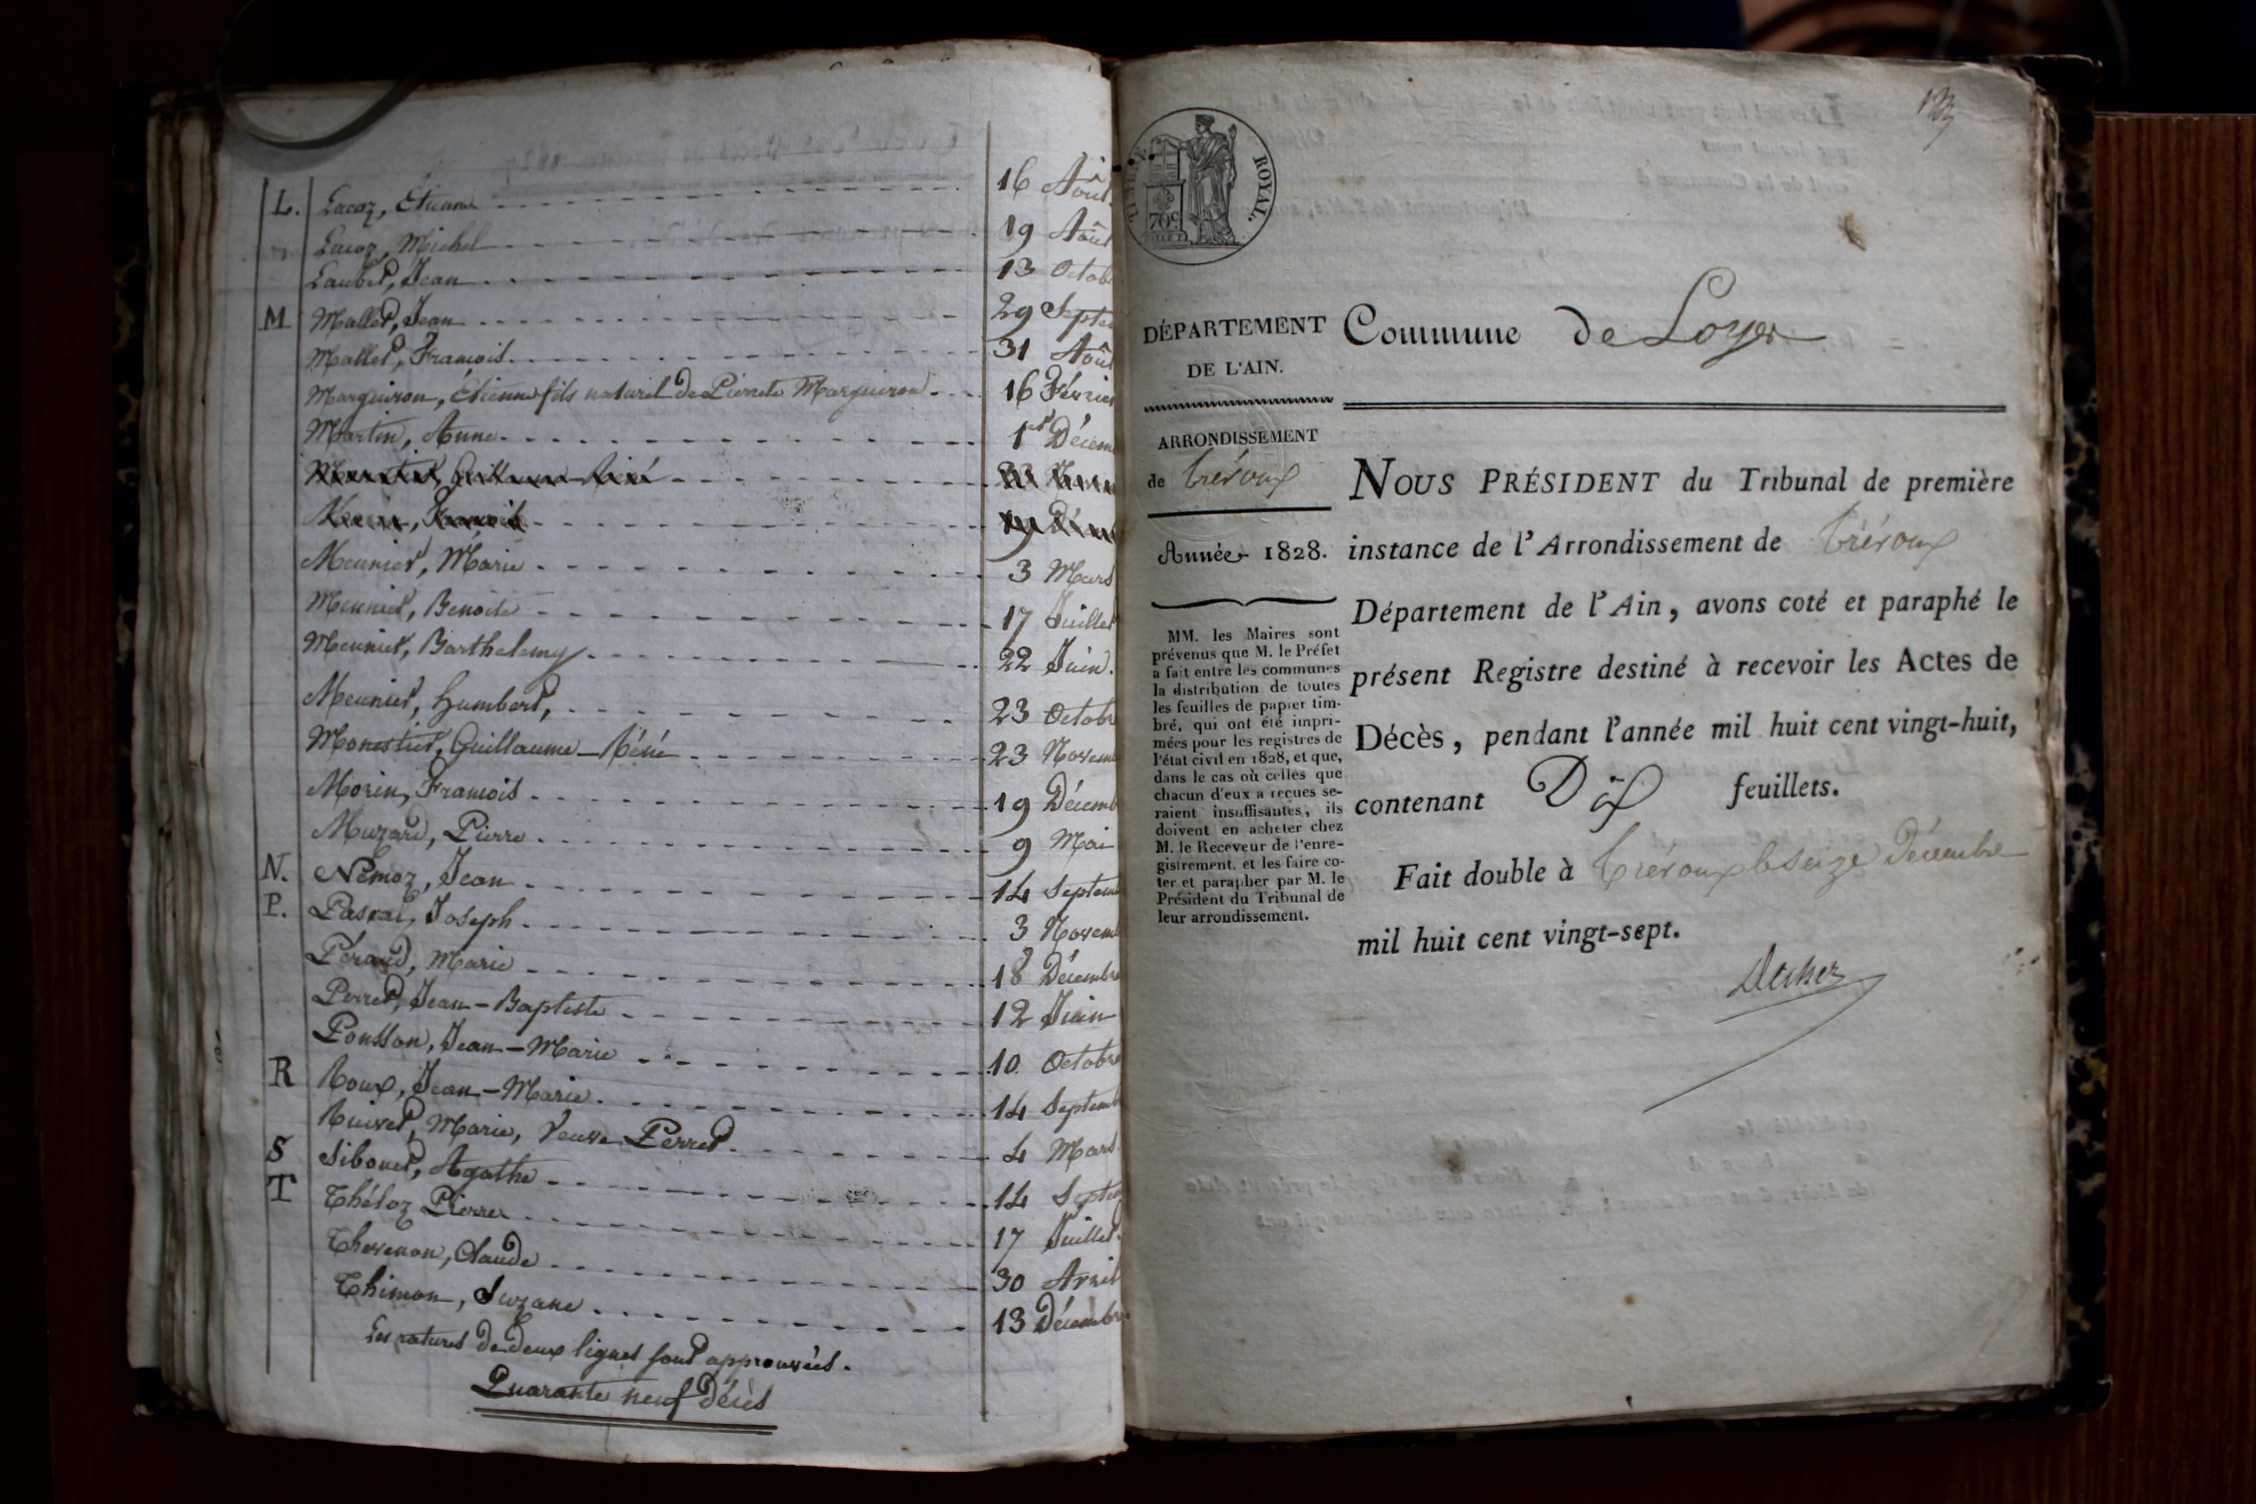 L. Lacoz, Étienne 16 Août
Lacoz, Michel 19 Août
Laubet, Jean 13 Octob
M Mallet, Jean 29 Septe
Mallet, François 31 Août
Marguiron, Étienne fils naturel de Pierrette Marguiron 16 Février
Martin, Anne 1er Décem
Meunier, Marie 3 Mars
Meunier, Benoite 17 Juillet
Meunier, Barthelemy 22 Juin.
Meunier, Humbert, 23 Octobr
Monestier, Guillaume-Réné 23 Novem
Morin, François 19 Décemb
Muzard, Pierre 9 Mai
N. Némoz, Jean 14 Septem
P. Pascal, Joseph 3 Novem
Péraud, Marie 18 Décembre
Perret, Jean-Baptiste 12 Juin
Ponsson, Jean-Marie 10 Octobre
R Roux, Jean-Marie 14 Septemb
Ruivet, Marie, Veuve Perret 4 Mars
S Sibouet, Agathe 14 Septem
T Théloz Pierre 17 Juillet
Thevenon, Claude 30 Avril
Thimon, Suzane 13 Décembre
Les ratures de deux lignes sont approuvées.
Quarante neuf Décès
123
TIMBRE ROYAL.
70c
DÉPARTEMENT
DE L'AIN.
Commune de Loyes
ARRONDISSEMENT
de Trévoux
Année 1828.
MM. les Maires sont
prévenus que M. le Préfet
a fait entre les communes
la distribution de toutes
les feuilles de papier tim-
bré, qui ont été impri-
mées pour les registres de
l'état civil en 1828, et que,
dans le cas où celles que
chacun d'eux a reçues se-
raient insuffisantes, ils
doivent en acheter chez
M. le Receveur de l'enre-
gistrement, et les faire co-
ter et parapher par M. le
Président du Tribunal de
leur arrondissement.
NOUS PRÉSIDENT du Tribunal de première
instance de l'Arrondissement de Trévoux
Département de l'Ain, avons coté et paraphé le
présent Registre destiné à recevoir les Actes de
Décès, pendant l'année mil huit cent vingt-huit,
contenant Dix feuillets.
Fait double à Trévoux le seize Décembre
mil huit cent vingt-sept.